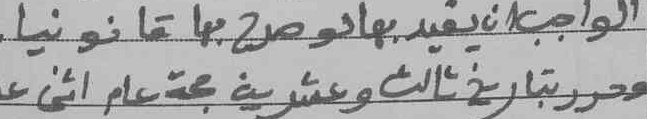 الواجب ان يقيد بها لو صرح بها قانونيا.
وحرر بتاريخ ثالث وعشرين حجة عام اثنى